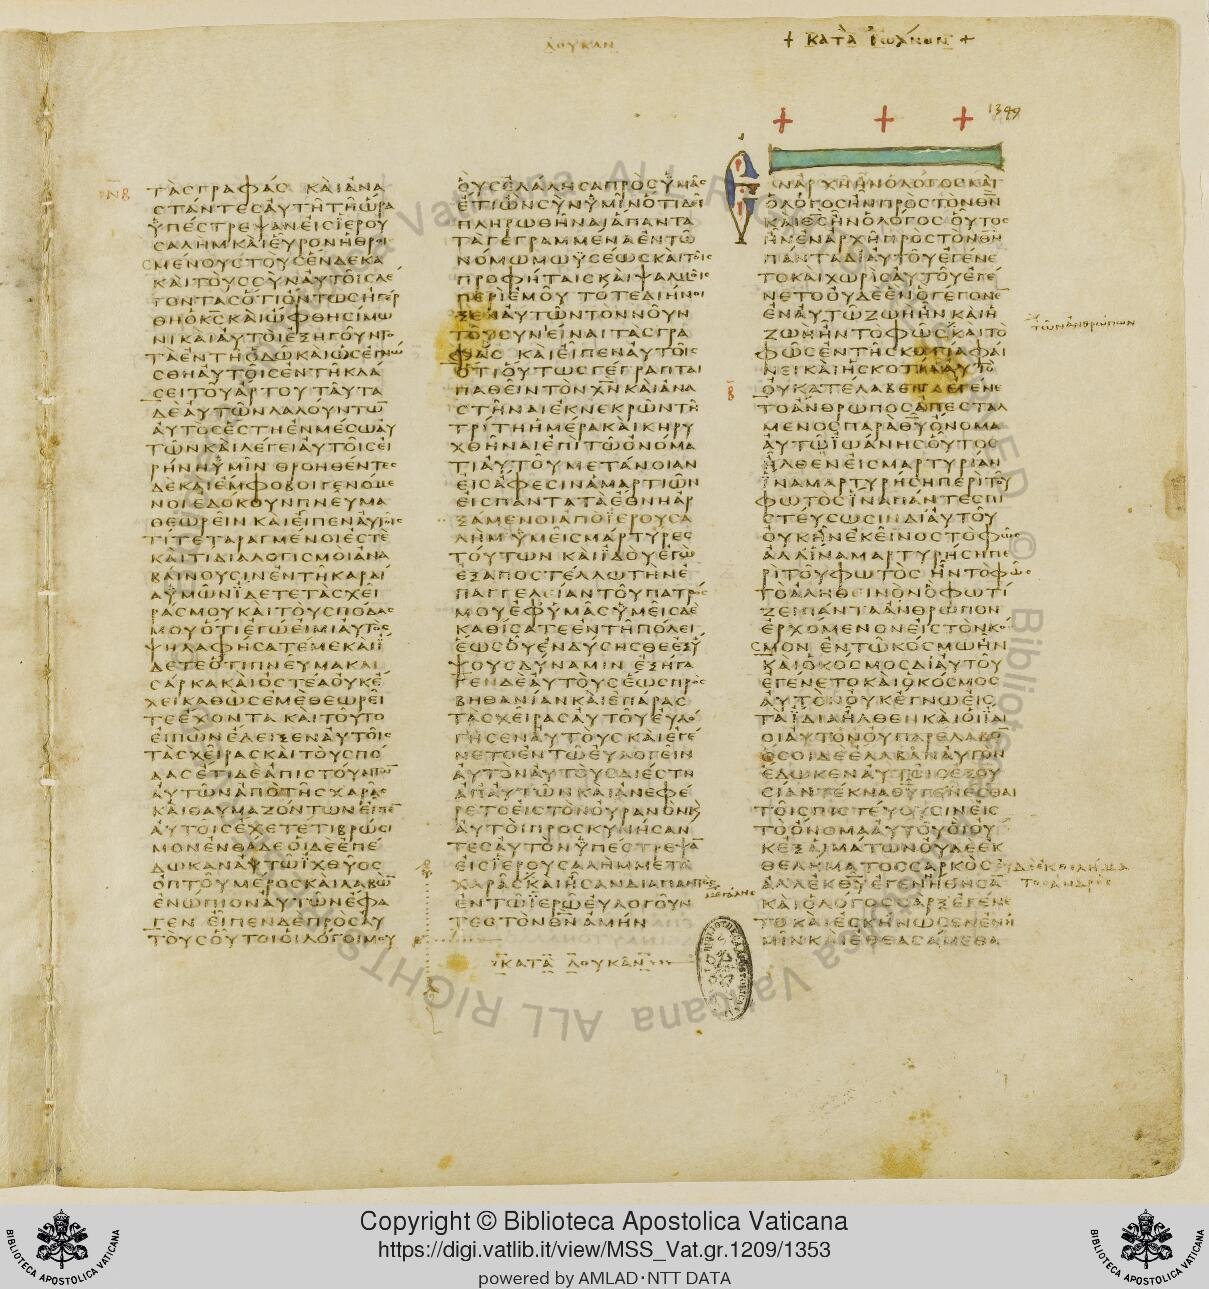 ΛΟΥΚΑΝ
+ ΚΑΤΑ ΙΩΑΝΝΗΝ +
1349
ΤΑϹΓΡΑΦΑϹ ΚΑΙΑΝΑ
ϹΤΑΝΤΕϹΑΥΤΗΤΗΩΡΑ
ΥΠΕϹΤΡΕΨΑΝΕΙϹΙΕΡΟΥ
ϹΑΛΗΜΚΑΙΕΥΡΟΝΗΘΡΟΙ
ϹΜΕΝΟΥϹΤΟΥϹΕΝΔΕΚΑ
ΚΑΙΤΟΥϹϹΥΝΑΥΤΟΙϹΛΕ
ΓΟΝΤΑϹΟΤΙΟΝΤΩϹΗΓΕΡ
ΘΗΟΚ̅Ϲ̅ΚΑΙΩΦΘΗϹΙΜΩ
ΝΙΚΑΙΑΥΤΟΙΕΞΗΓΟΥΝΤΟ
ΤΑΕΝΤΗΟΔΩΚΑΙΩϹΕΓΝΩ
ϹΘΗΑΥΤΟΙϹΕΝΤΗΚΛΑ
ϹΕΙΤΟΥΑΡΤΟΥΤΑΥΤΑ
ΔΕΑΥΤΩΝΛΑΛΟΥΝΤΩ̅
ΑΥΤΟϹΕϹΤΗΕΝΜΕϹΩΑΥ
ΤΩΝΚΑΙΛΕΓΕΙΑΥΤΟΙϹΕΙ
ΡΗΝΗΥΜΙΝ ΘΡΟΗΘΕΝΤΕϹ
ΔΕΚΑΙΕΜΦΟΒΟΙΓΕΝΟΜΕ
ΝΟΙΕΔΟΚΟΥΝΠΝΕΥΜΑ
ΘΕΩΡΕΙΝ ΚΑΙΕΙΠΕΝΑΥΤΟΙϹ
ΤΙΤΕΤΑΡΑΓΜΕΝΟΙΕϹΤΕ
ΚΑΙΤΙΔΙΑΛΟΓΙϹΜΟΙΑΝΑ
ΒΑΙΝΟΥϹΙΝΕΝΤΗΚΑΡΔΙ
ΑΥΜΩΝΪΔΕΤΕΤΑϹΧΕΙ
ΡΑϹΜΟΥΚΑΙΤΟΥϹΠΟΔΑϹ
ΜΟΥΟΤΙΕΓΩΕΙΜΙΑΥΤΟϹ
ΨΗΛΑΦΗϹΑΤΕΜΕΚΑΙΪ
ΔΕΤΕΟΤΙΠΝΕΥΜΑΚΑΙ
ϹΑΡΚΑΚΑΙΟϹΤΕΑΟΥΚΕ
ΧΕΙΚΑΘΩϹΕΜΕΘΕΩΡΕΙ
ΤΕΕΧΟΝΤΑ ΚΑΙΤΟΥΤΟ
ΕΙΠΩΝΕΔΕΙΞΕΝΑΥΤΟΙϹ
ΤΑϹΧΕΙΡΑϹΚΑΙΤΟΥϹΠΟ
ΔΑϹΕΤΙΔΕΑΠΙϹΤΟΥΝΤΩ̅
ΑΥΤΩΝΑΠΟΤΗϹΧΑΡΑϹ
ΚΑΙΘΑΥΜΑΖΟΝΤΩΝΕΙΠΕ̅
ΑΥΤΟΙϹΕΧΕΤΕΤΙΒΡΩϹΙ
ΜΟΝΕΝΘΑΔΕΟΙΔΕΕΠΕ
ΔΩΚΑΝΑΥΤΩΪΧΘΥΟϹ
ΟΠΤΟΥΜΕΡΟϹΚΑΙΛΑΒΩ̅
ΕΝΩΠΙΟΝΑΥΤΩΝΕΦΑ
ΓΕΝ ΕΙΠΕΝΔΕΠΡΟϹΑΥ
ΤΟΥϹΟΥΤΟΙΟΙΛΟΓΟΙΜΟΥ
ΟΥϹΕΛΑΛΗϹΑΠΡΟϹΥΜΑϹ
ΕΤΙΩΝϹΥΝΥΜΙΝΟΤΙΔΕΙ
ΠΛΗΡΩΘΗΝΑΙΑΠΑΝΤΑ
ΤΑΓΕΓΡΑΜΜΕΝΑΕΝΤΩ
ΝΟΜΩΜΩΫϹΕΩϹΚΑΙΤΟΙϹ
ΠΡΟΦΗΤΑΙϹΚΑΙΨΑΛΜΟΙϹ
ΠΕΡΙΕΜΟΥ ΤΟΤΕΔΙΗΝΟΙ
ΞΕΝΑΥΤΩΝΤΟΝΝΟΥΝ
ΤΟΥϹΥΝΕΙΝΑΙΤΑϹΓΡΑ
ΦΑϹ ΚΑΙΕΙΠΕΝΑΥΤΟΙϹ
ΟΤΙΟΥΤΩϹΓΕΓΡΑΠΤΑΙ
ΠΑΘΕΙΝΤΟΝΧ̅Ν̅ ΚΑΙΑΝΑ
ϹΤΗΝΑΙΕΚΝΕΚΡΩΝΤΗ
ΤΡΙΤΗΗΜΕΡΑΚΑΙΚΗΡΥ
ΧΘΗΝΑΙΕΠΙΤΩΟΝΟΜΑ
ΤΙΑΥΤΟΥΜΕΤΑΝΟΙΑΝ
ΕΙϹΑΦΕϹΙΝΑΜΑΡΤΙΩΝ
ΕΙϹΠΑΝΤΑΤΑΕΘΝΗΑΡ
ΞΑΜΕΝΟΙΑΠΟΪΕΡΟΥϹΑ
ΛΗΜ ΥΜΕΙϹΜΑΡΤΥΡΕϹ
ΤΟΥΤΩΝ ΚΑΙΪΔΟΥΕΓΩ
ΕΞΑΠΟϹΤΕΛΛΩΤΗΝΕ
ΠΑΓΓΕΛΕΙΑΝΤΟΥΠΑΤΡΟϹ
ΜΟΥΕΦΥΜΑϹΥΜΕΙϹΔΕ
ΚΑΘΙϹΑΤΕΕΝΤΗΠΟΛΕΙ
ΕΩϹΟΥΕΝΔΥϹΗϹΘΕΕΞΥ
ΨΟΥϹΔΥΝΑΜΙΝ ΕΞΗΓΑ
ΓΕΝΔΕΑΥΤΟΥϹΕΩϹΠΡΟϹ
ΒΗΘΑΝΙΑΝΚΑΙΕΠΑΡΑϹ
ΤΑϹΧΕΙΡΑϹΑΥΤΟΥΕΥΛΟ
ΓΗϹΕΝΑΥΤΟΥϹΚΑΙΕΓΕ
ΝΕΤΟΕΝΤΩΕΥΛΟΓΕΙΝ
ΑΥΤΟΝΑΥΤΟΥϹΔΙΕϹΤΗ
ΑΠΑΥΤΩΝΚΑΙΑΝΕΦΕ
ΡΕΤΟΕΙϹΤΟΝΟΥΡΑΝΟΝΚ
ΑΥΤΟΙΠΡΟϹΚΥΝΗϹΑΝ
ΤΕϹΑΥΤΟΝΥΠΕϹΤΡΕΨΑ̅
ΕΙϹΪΕΡΟΥϹΑΛΗΜΜΕΤΑ
ΧΑΡΑϹΚΑΙΗϹΑΝΔΙΑΠΑΝΤΟϹ
ΜΕΓΑΛΗϹ
ΕΝΤΩΪΕΡΩΕΥΛΟΓΟΥΝ
ΤΕϹΤΟΝΘ̅Ν̅ ΑΜΗΝ
ΚΑΤΑ ΛΟΥΚΑΝ
ΕΝΑΡΧΗΗΝΟΛΟΓΟϹΚΑΙ
ΟΛΟΓΟϹΗΝΠΡΟϹΤΟΝΘ̅Ν̅
ΚΑΙΘ̅Ϲ̅ΗΝΟΛΟΓΟϹ ΟΥΤΟϹ
ΗΝΕΝΑΡΧΗΠΡΟϹΤΟΝΘ̅Ν̅
ΠΑΝΤΑΔΙΑΥΤΟΥΕΓΕΝΕ
ΤΟΚΑΙΧΩΡΙϹΑΥΤΟΥΕΓΕ
ΝΕΤΟΟΥΔΕΕΝΟΓΕΓΟΝΕ̅
ΕΝΑΥΤΩΖΩΗΗΝΚΑΙΗ
ΖΩΗΗΝΤΟΦΩϹ ΚΑΙΤΟ
ΤΩΝΑΝΘΡΩΠΩΝ
ΦΩϹΕΝΤΗϹΚΟΤΙΑΦΑΙ
ΝΕΙΚΑΙΗϹΚΟΤΙΑΑΥΤΟ
ΟΥΚΑΤΕΛΑΒΕΝ ΕΓΕΝΕ
ΤΟΑΝΘΡΩΠΟϹΑΠΕϹΤΑΛ
ΜΕΝΟϹΠΑΡΑΘ̅Υ̅ΟΝΟΜΑ
ΑΥΤΩΪΩΑΝΗϹΟΥΤΟϹ
ΗΛΘΕΝΕΙϹΜΑΡΤΥΡΙΑΝ
ΪΝΑΜΑΡΤΥΡΗϹΗΠΕΡΙΤΟΥ
ΦΩΤΟϹ ΪΝΑΠΑΝΤΕϹΠΙ
ϹΤΕΥϹΩϹΙΝΔΙΑΥΤΟΥ
ΟΥΚΗΝΕΚΕΙΝΟϹΤΟΦΩϹ
ΑΛΛΪΝΑΜΑΡΤΥΡΗϹΗΠΕ
ΡΙΤΟΥΦΩΤΟϹ ΗΝΤΟΦΩϹ
ΤΟΑΛΗΘΕΙΝΟΝΟΦΩΤΙ
ΖΕΙΠΑΝΤΑΑΝΘΡΩΠΟΝ
ΕΡΧΟΜΕΝΟΝΕΙϹΤΟΝΚΟ
ϹΜΟΝ ΕΝΤΩΚΟϹΜΩΗΝ
ΚΑΙΟΚΟϹΜΟϹΔΙΑΥΤΟΥ
ΕΓΕΝΕΤΟΚΑΙΟΚΟϹΜΟϹ
ΑΥΤΟΝΟΥΚΕΓΝΩΕΙϹ
ΤΑΪΔΙΑΗΛΘΕΝΚΑΙΟΙΪΔΙ
ΟΙΑΥΤΟΝΟΥΠΑΡΕΛΑΒΟ̅
ΟϹΟΙΔΕΕΛΑΒΑΝΑΥΤΟΝ
ΕΔΩΚΕΝΑΥΤΟΙϹΕΞΟΥ
ϹΙΑΝΤΕΚΝΑΘ̅Υ̅ΓΕΝΕϹΘΑΙ
ΤΟΙϹΠΙϹΤΕΥΟΥϹΙΝΕΙϹ
ΤΟΟΝΟΜΑΑΥΤΟΥΟΙΟΥ
ΚΕΞΑΙΜΑΤΩΝΟΥΔΕΕΚ
ΘΕΛΗΜΑΤΟϹϹΑΡΚΟϹ
ΟΥΔΕΕΚΘΕΛΗΜΑ
ΤΟϹΑΝΔΡΟϹ
ΑΛΛΕΚΘ̅Υ̅ΕΓΕΝΗΘΗϹΑ̅
ΚΑΙΟΛΟΓΟϹϹΑΡΞΕΓΕΝΕ
ΤΟ ΚΑΙΕϹΚΗΝΩϹΕΝΕΝΗ
ΜΙΝΚΑΙΕΘΕΑϹΑΜΕΘΑ
Copyright © Biblioteca Apostolica Vaticana
https://digi.vatlib.it/view/MSS_Vat.gr.1209/1353
powered by AMLAD·NTT DATA